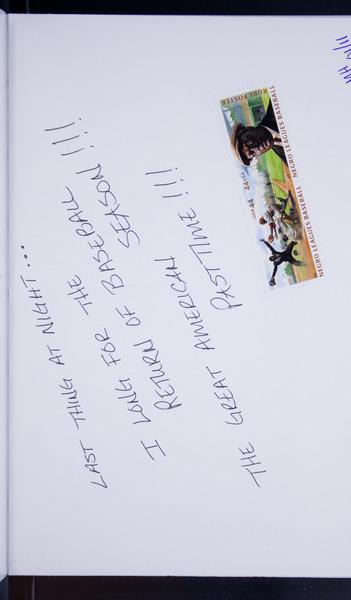 LAST THING AT NIGHT...
I LONG FOR THE
RETURN OF BASEBALL
SEASON!!!.
THE GREAT AMERICAN
PASTTIME!!!
RUBE FOSTER
NEGRO LEAGUES BASEBALL
USA 44
44 USA
NEGRO LEAGUES BASEBALL